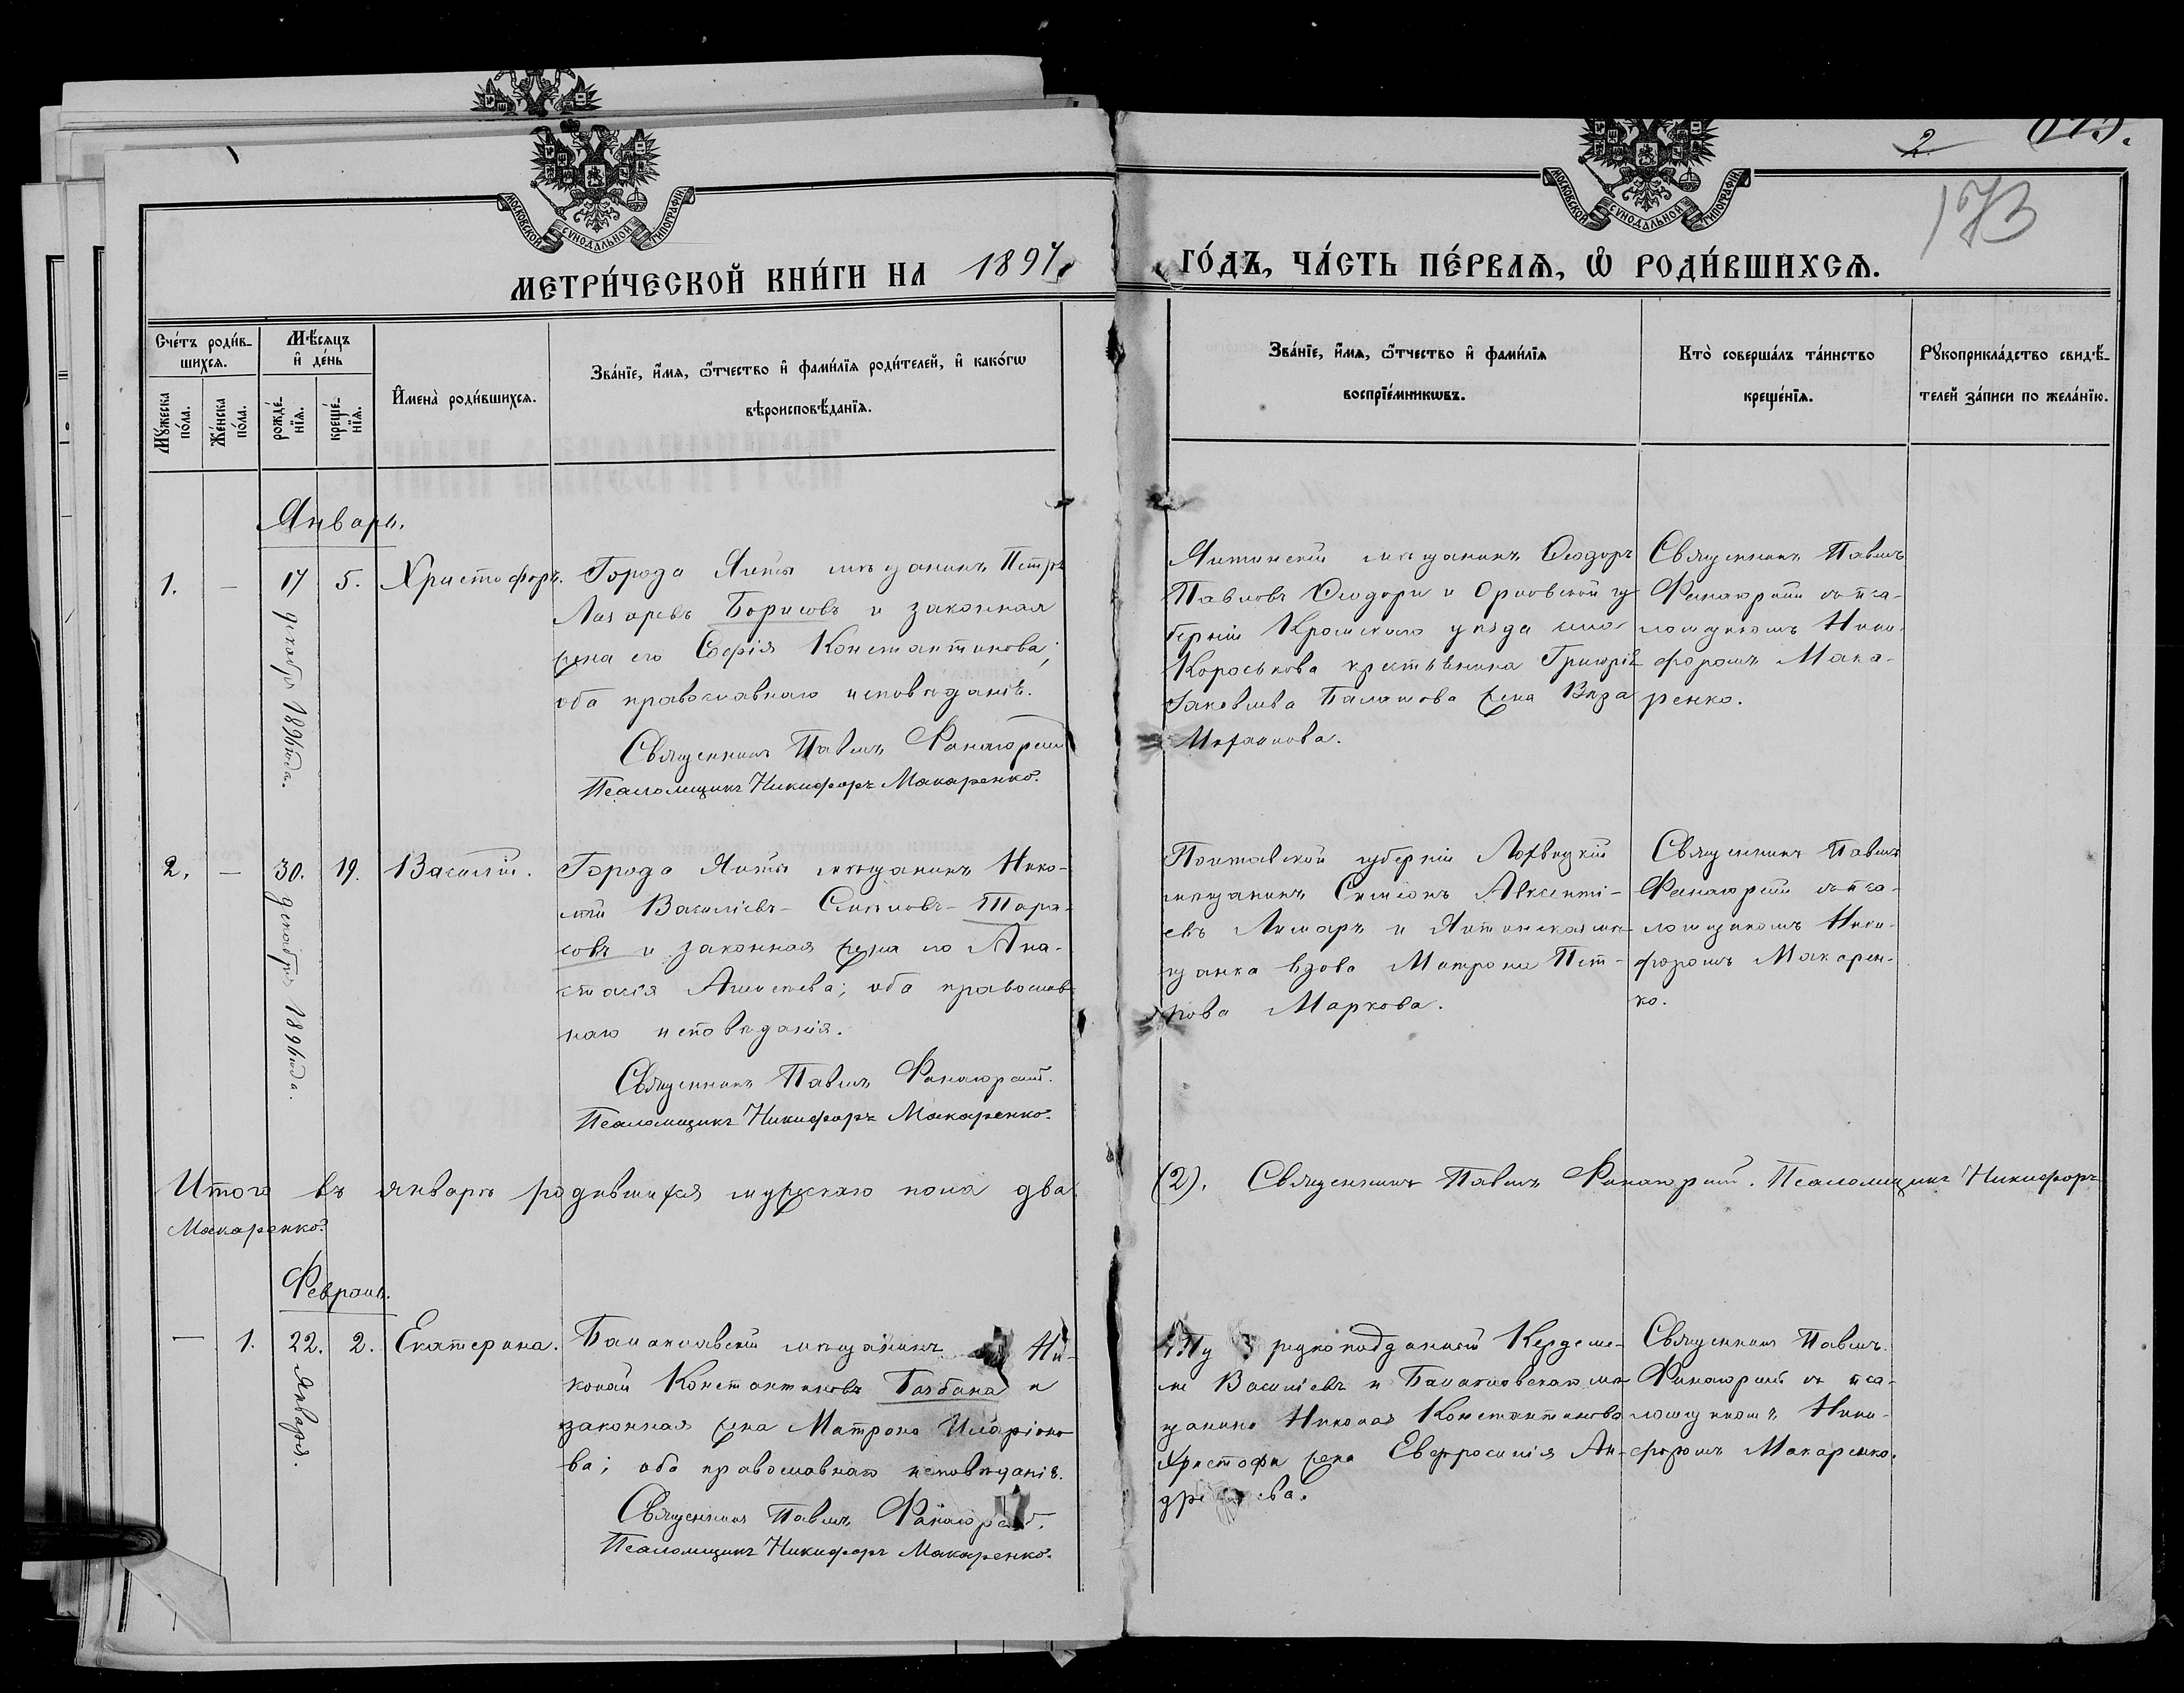 МОСКОВСКОЙ СУНОДАЛЬНОЙ ТИПОГРАФІИ
МОСКОВСКОЙ СУНОДАЛЬНОЙ ТИПОГРАФІИ
2
173
МЕТРИ́ЧЕСКОЙ КНИ́ГИ НА 1897 ГО́ДЪ, ЧА́СТЬ ПЕ́РВАѦ, Ѡ РОДИ́ВШИХСѦ.
Сче́тъ роди́в-
шихсѧ.
Мѣ́сѧцъ
и де́нь
Мꙋ́жеска
по́ла.
Же́нска
по́ла.
рожде́-
нїѧ.
креще́-
нїѧ.
Имена̀ роди́вшихсѧ.
Зва́нїе, и́мѧ, ѻ́тчество и фами́лїѧ роди́телей, и како́гѡ
вѣроисповѣ́данїѧ.
Зва́нїе, и́мѧ, ѻ́тчество и фами́лїѧ
воспрїе́мникѡвъ.
Кто̀ соверша́лъ та́инство
креще́нїѧ.
Рꙋкоприкла́дство свидѣ́-
телей за́писи по жела́нїю.
Январь.
1. — 17 декабря 1896 года. 5. Христофоръ.
Города Ялты мѣщанинъ Петръ
Лазаревъ Борисовъ и законная
жена его Софія Константинова;
оба православнаго исповѣданія.
Священникъ Павелъ
Псаломщикъ Никифоръ Макаренко.
Ялтинскій мѣщанинъ Ѳеодоръ
Павловъ Ѳеодори и Орловской гу-
берніи Кромскаго уѣзда села
Короськова крестьянина Григорія
Іаковлева Балашова жена Вѣра
Священникъ Павелъ
съ пса-
ломщикомъ Ники-
форомъ Мака-
ренко.
2. — 30. декабря 1896 года. 19. Василій.
Города Ялты мѣщанинъ Нико-
лай Васильевъ Тара-
совъ и законная жена его Ана-
стасія Алексѣева; оба православ-
наго исповѣданія.
Священникъ Павелъ
Псаломщикъ Никифоръ Макаренко.
Полтавской губерніи Лохвицкій
мѣщанинъ Симеонъ Авксенті-
евъ Лимаръ и Ялтинская мѣ-
щанка вдова Матрона Пет-
рова Маркова.
Священникъ Павелъ
съ пса-
ломщикомъ Ники-
форомъ Макарен-
ко.
Итого въ январѣ родившихся мужескаго пола два (2). Священникъ Павелъ Псаломщикъ Никифоръ
Макаренко.
Февраль.
— 1. 22. Января. 2. Екатерина.
Балаклавскій мѣщанинъ Ни-
колай Константиновъ и
законная жена Матрона Иларіоно-
ва; оба православнаго исповѣданія.
Священникъ Павелъ
Псаломщикъ Никифоръ Макаренко.
Васильевъ и Балаклавскаго мѣ-
щанина Николая Константинова
Христофи жена Евфросинія Ан-
Священникъ Павелъ
съ пса-
ломщикомъ Ники-
форомъ Макаренко.